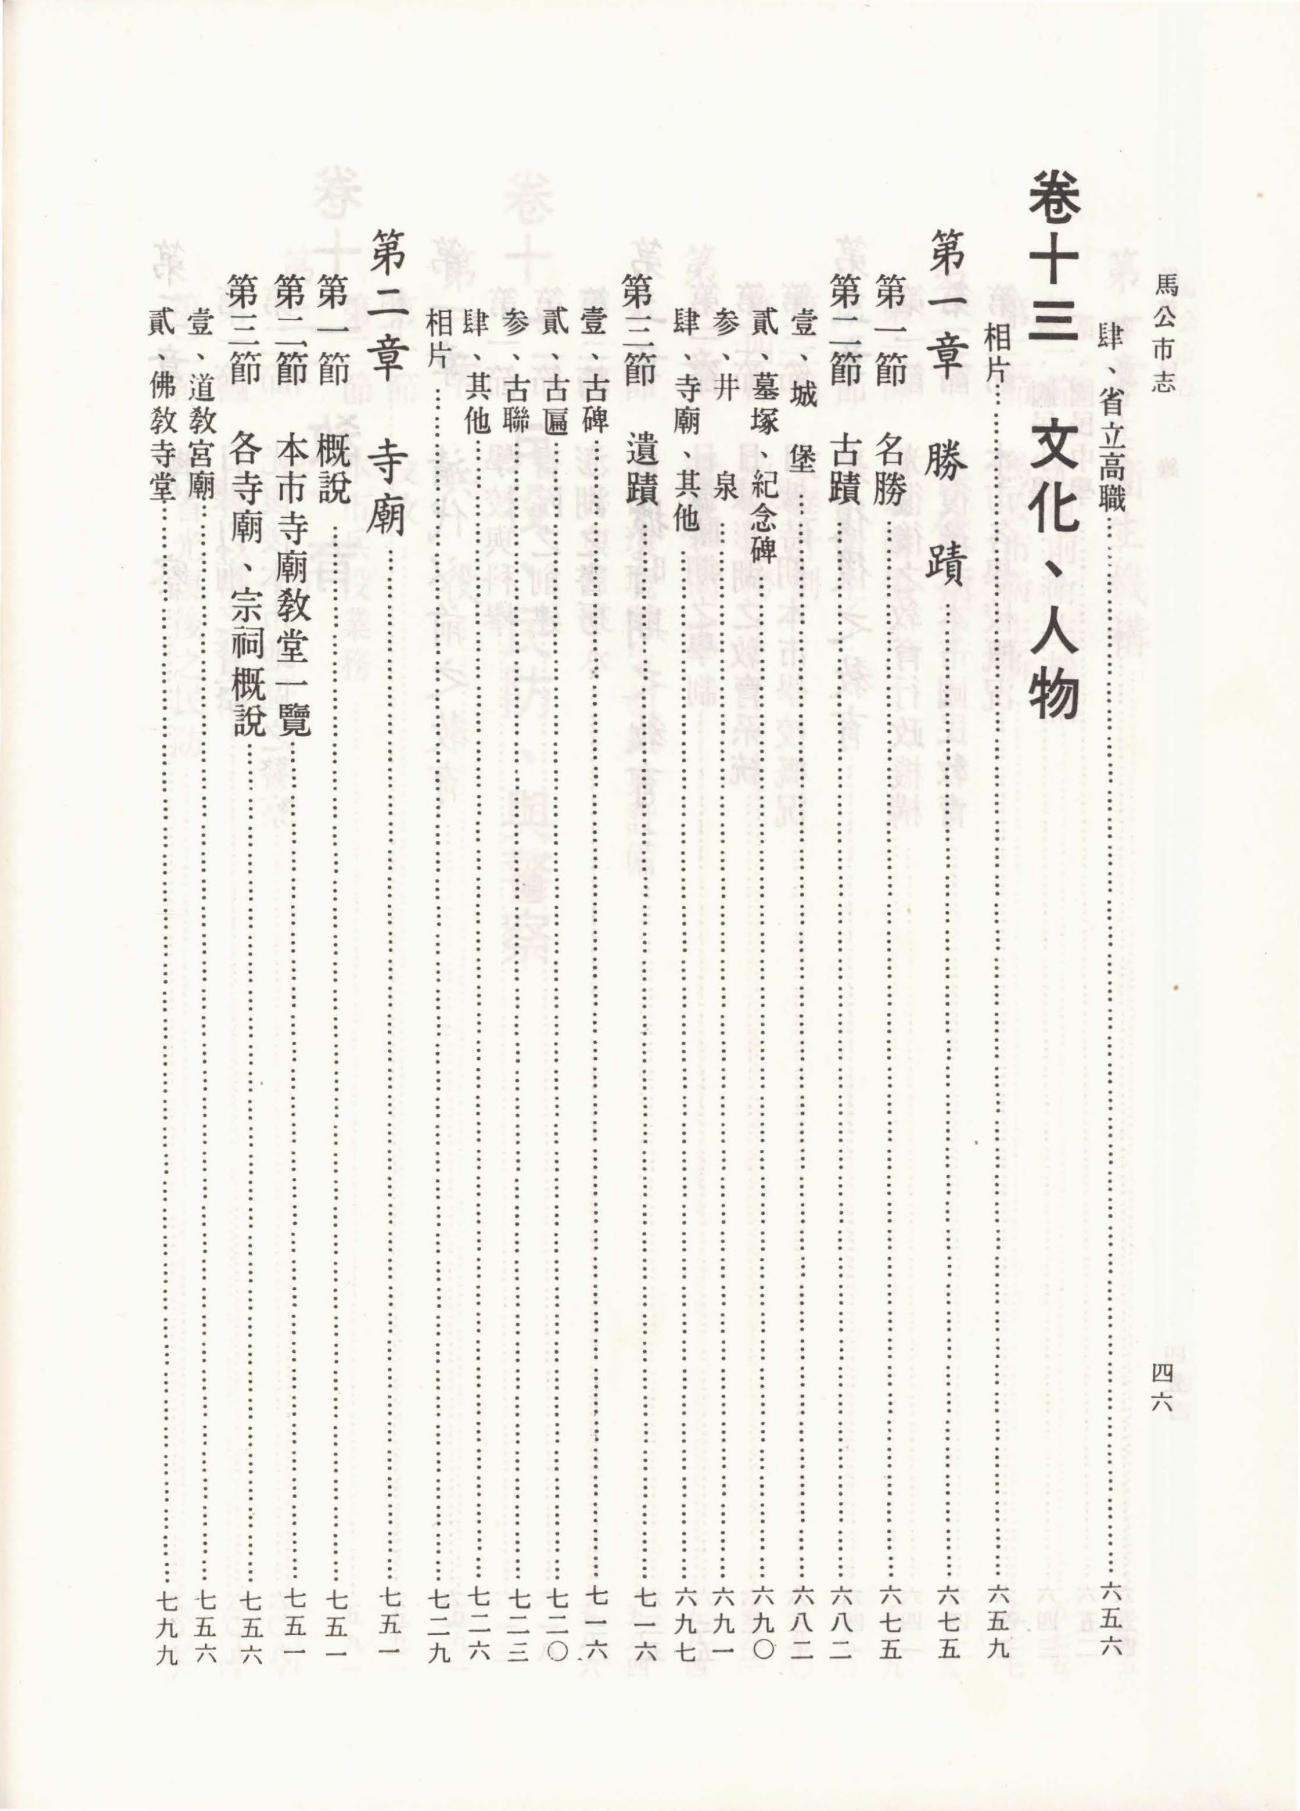 馬公市志
四六
肆、省立高職……六五六
卷十三 文化、人物
相片……六五九
第一章 勝蹟……六七五
第一節 名勝……六七五
第二節 古蹟……六八二
壹、城堡……六八二
貳、墓塚、紀念碑……六九〇
参、井泉……六九一
肆、寺廟、其他……六九七
第三節 遺蹟……七一六
壹、古碑……七一六
貳、古匾……七二〇
参、古聯……七二三
肆、其他……七二六
相片……七二九
第二章 寺廟……七五一
第一節 概說……七五一
第二節 本市寺廟教堂一覽……七五一
第三節 各寺廟、宗祠概說……七五六
壹、道教宮廟……七五六
貳、佛教寺堂……七九九